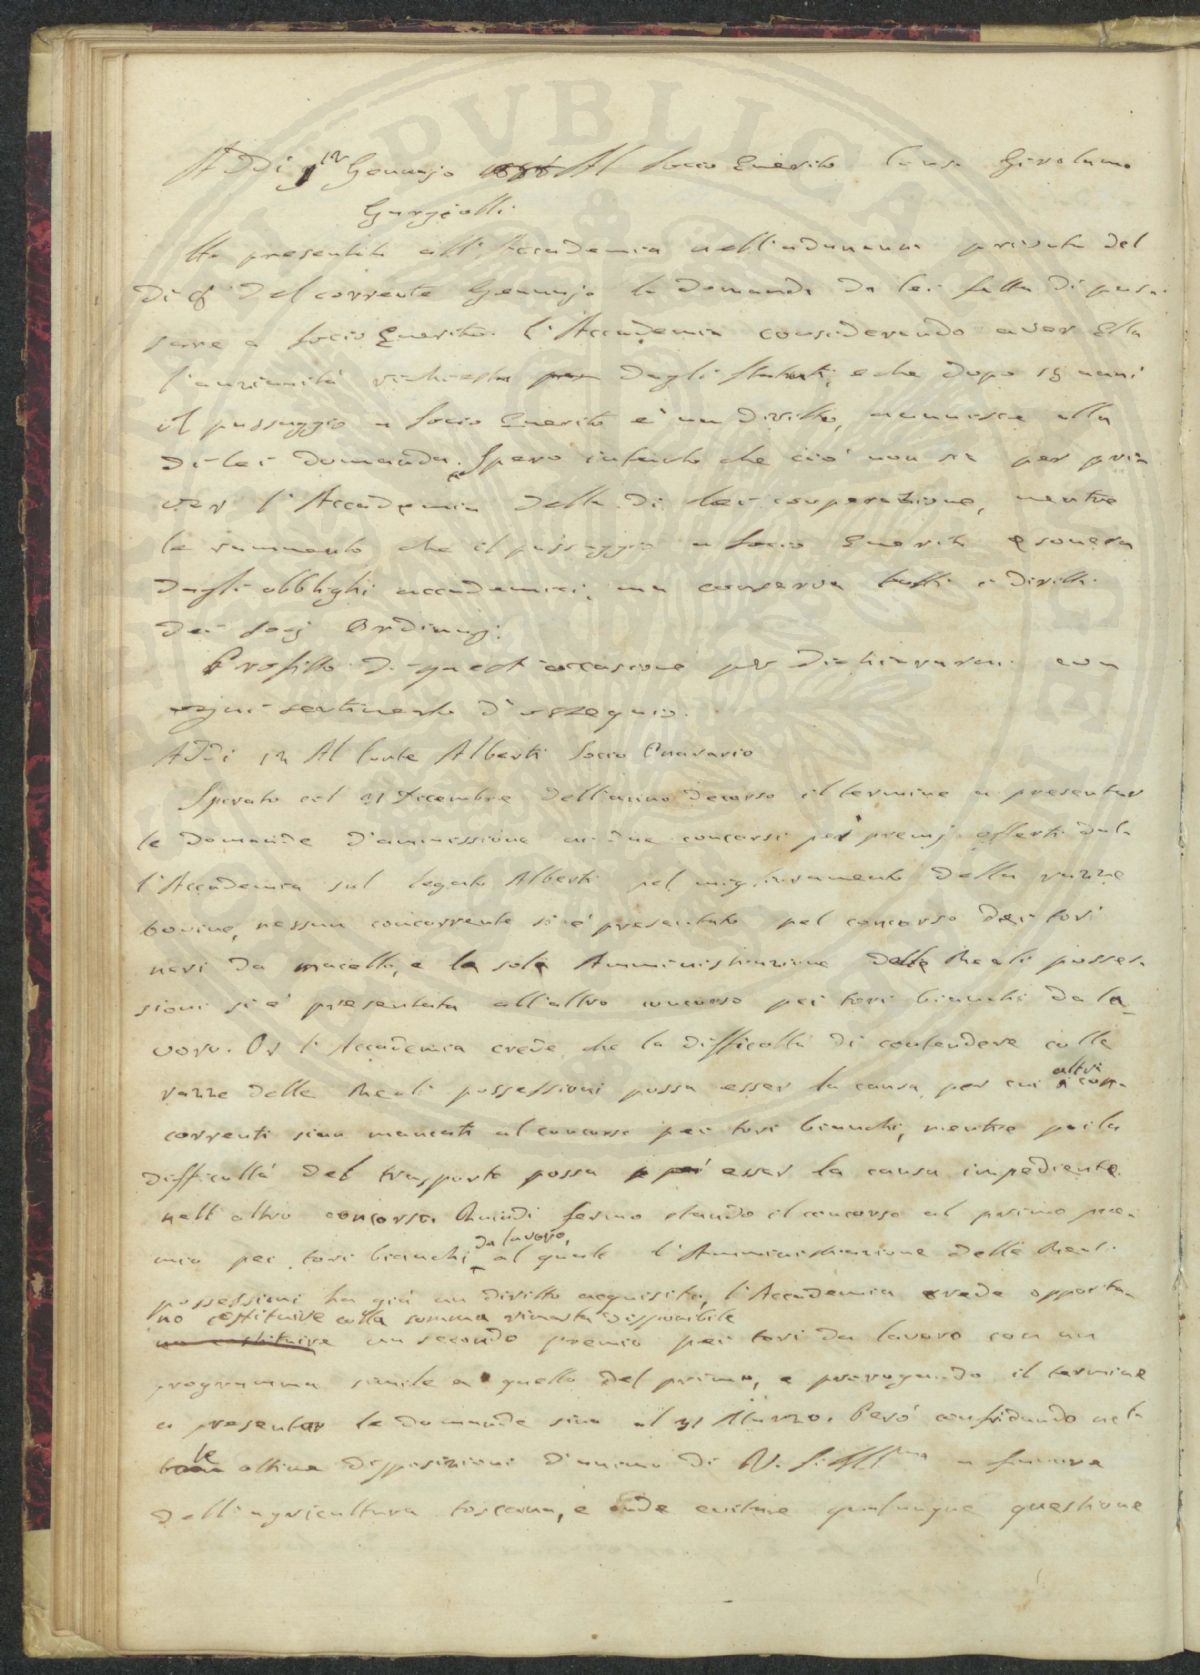 Addì 12 Gennajo Al Socio Emerito Girolamo
Gargiolli.
Ho presentato all'Accademia nell'adunanza privata del
dì 8 del corrente Gennajo la domanda da lei fatta di pas-
sare a Socio Emerito. L'Accademia considerando aver Ella
l'anzianità richiesta dagli Statuti, e che dopo 15 anni
il passaggio a Socio Emerito è un diritto, annuisce alla
di lei domanda. Spero intanto che ciò non sia per pri-
var l'Accademia della di lei cooperazione, mentre
le rammento che il passaggio a Socio Emerito esonera
dagli obblighi accademici, ma conserva tutti i diritti
dei Socj Ordinarj.
Profitto di quest'occasione per dichiararmi con
ogni sentimento d'ossequio.
Addì 12 Al Conte Alberti Socio Onorario
Spirato col 31 Decembre dell'anno decorso il termine a presentar
le domande d'ammissione ai due concorsi pei premj offerti dal-
l'Accademia sul legato Alberti pel miglioramento della razze
bovine, nessun concorrente si è presentato pel concorso dei tori
neri da macello, e la sola Amministrazione delle Reali posses-
sioni si è presentata all'altro concorso pei tori bianchi da la-
voro. Or l'Accademia crede che la difficoltà di contendere colle
razze delle Reali possessioni possa esser la causa per cui altri con-
correnti sian mancati al concorso pei tori bianchi, mentre poi la
difficoltà del trasporto possa esser la causa impediente
nell'altro concorso. Quindi fermo stando il concorso al primo pre-
mio pei tori bianchi da lavoro, al quale l'Amministrazione delle Reali
possessioni ha già un diritto acquisito, l'Accademia crede opportu-
no costituire colla somma rimasta disponibile
un secondo premio pei tori da lavoro con un
programma simile a quello del primo, e prorogando il termine
a presentar le domande sino al 31 Marzo. Però confidando nel-
le ottime disposizioni d'animo di V. S. Ill.ma a favore
dell'agricoltura toscana, e onde evitare qualunque questione